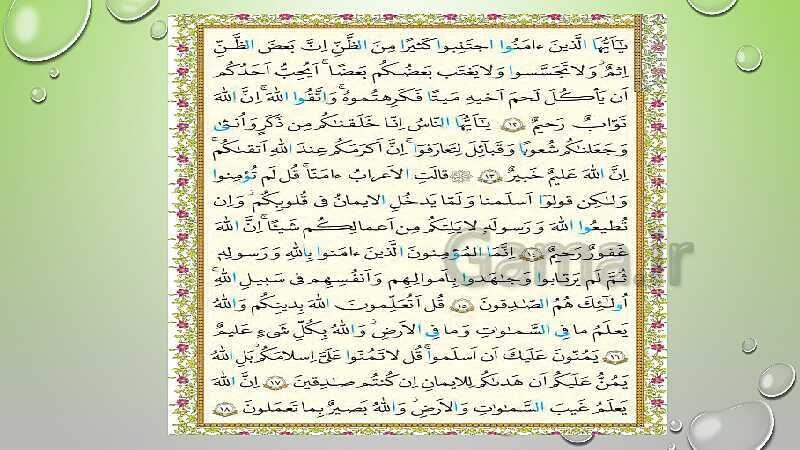 يٰٓاَيُّهَا الَّذينَ ءامَنُوا اجتَنِبوا كَثيرًا مِنَ الظَّنِّ اِنَّ بَعضَ الظَّنِّ
اِثمٌ ۖ وَلا تَجَسَّسوا وَلا يَغتَب بَعضُكُم بَعضًا ۚ اَيُحِبُّ اَحَدُكُم
اَن يَأكُلَ لَحمَ اَخيهِ مَيتًا فَكَرِهتُموهُ ۚ وَاتَّقُوا اللهَ ۚ اِنَّ اللهَ
تَوّابٌ رَحيمٌ ﴿١٢﴾ يٰٓاَيُّهَا النّاسُ اِنّا خَلَقنٰكُم مِن ذَكَرٍ وَاُنثىٰ
وَجَعَلنٰكُم شُعوبًا وَقَبائِلَ لِتَعارَفوا ۚ اِنَّ اَكرَمَكُم عِندَ اللهِ اَتقىٰكُم ۚ
اِنَّ اللهَ عَليمٌ خَبيرٌ ﴿١٣﴾ ۞ قالَتِ الاَعرابُ ءامَنّا ۖ قُل لَم تُؤمِنوا
وَلٰكِن قولوا اَسلَمنا وَلَمّا يَدخُلِ الايمانُ فى قُلوبِكُم ۖ وَاِن
تُطيعُوا اللهَ وَرَسولَهُ لا يَلِتكُم مِن اَعمالِكُم شَيئًا ۚ اِنَّ اللهَ
غَفورٌ رَحيمٌ ﴿١٤﴾ اِنَّمَا المُؤمِنونَ الَّذينَ ءامَنوا بِاللهِ وَرَسولِهِ
ثُمَّ لَم يَرتابوا وَجاهَدوا بِاَموالِهِم وَاَنفُسِهِم فى سَبيلِ اللهِ ۚ
اُولٰئِكَ هُمُ الصّٰدِقونَ ﴿١٥﴾ قُل اَتُعَلِّمونَ اللهَ بِدينِكُم وَاللهُ
يَعلَمُ ما فِى السَّمٰوٰتِ وَما فِى الاَرضِ ۚ وَاللهُ بِكُلِّ شَىءٍ عَليمٌ
﴿١٦﴾ يَمُنّونَ عَلَيكَ اَن اَسلَموا ۖ قُل لا تَمُنّوا عَلَىَّ اِسلامَكُم ۖ بَلِ اللهُ
يَمُنُّ عَلَيكُم اَن هَدىٰكُم لِلايمانِ اِن كُنتُم صٰدِقينَ ﴿١٧﴾ اِنَّ اللهَ
يَعلَمُ غَيبَ السَّمٰوٰتِ وَالاَرضِ ۚ وَاللهُ بَصيرٌ بِما تَعمَلونَ ﴿١٨﴾
Gama.ir